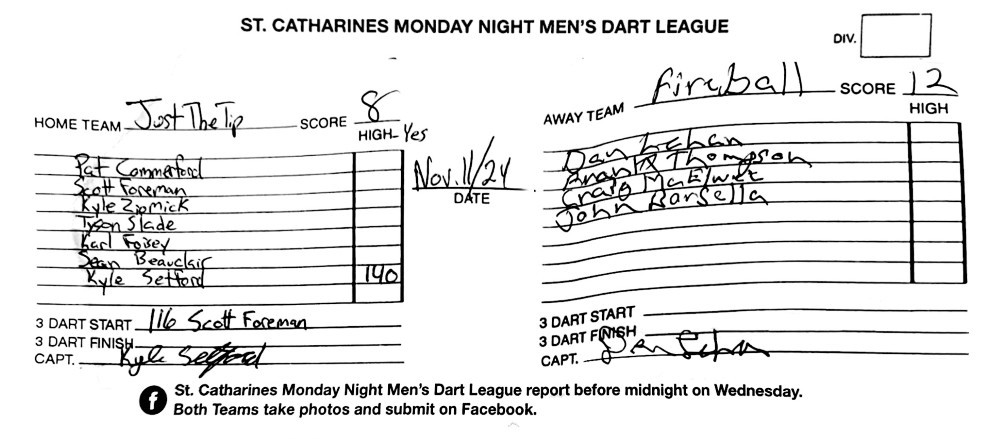 ST. CATHARINES MONDAY NIGHT MEN'S DART LEAGUE
DIV.
HOME TEAM Just The Tip SCORE 8
HIGH - Yes
Pat Commerford
Scott Foreman
Kyle Zipmick
Tyson Slade
Karl Foisey
Sean Beauclair
Kyle Setford 140
3 DART START 116 Scott Foreman
3 DART FINISH
CAPT. Kyle Setford
Nov. 11/24
DATE
AWAY TEAM Fireball SCORE 12
HIGH
Dan
Thompson
Craig
John Barsella
3 DART START
3 DART FINISH
CAPT. Dan
f St. Catharines Monday Night Men's Dart League report before midnight on Wednesday.
Both Teams take photos and submit on Facebook.